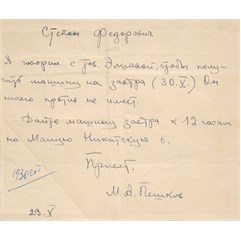 Степан Федорович
Я говорил с тов. Элиавой, чтобы полу-
чить машину на завтра (30.V.) Он
ничего против не имеет.
Дайте машину завтра к 12 часам
на Малую Никитскую 6.
Привет.
М. А. Пешков
29.V.